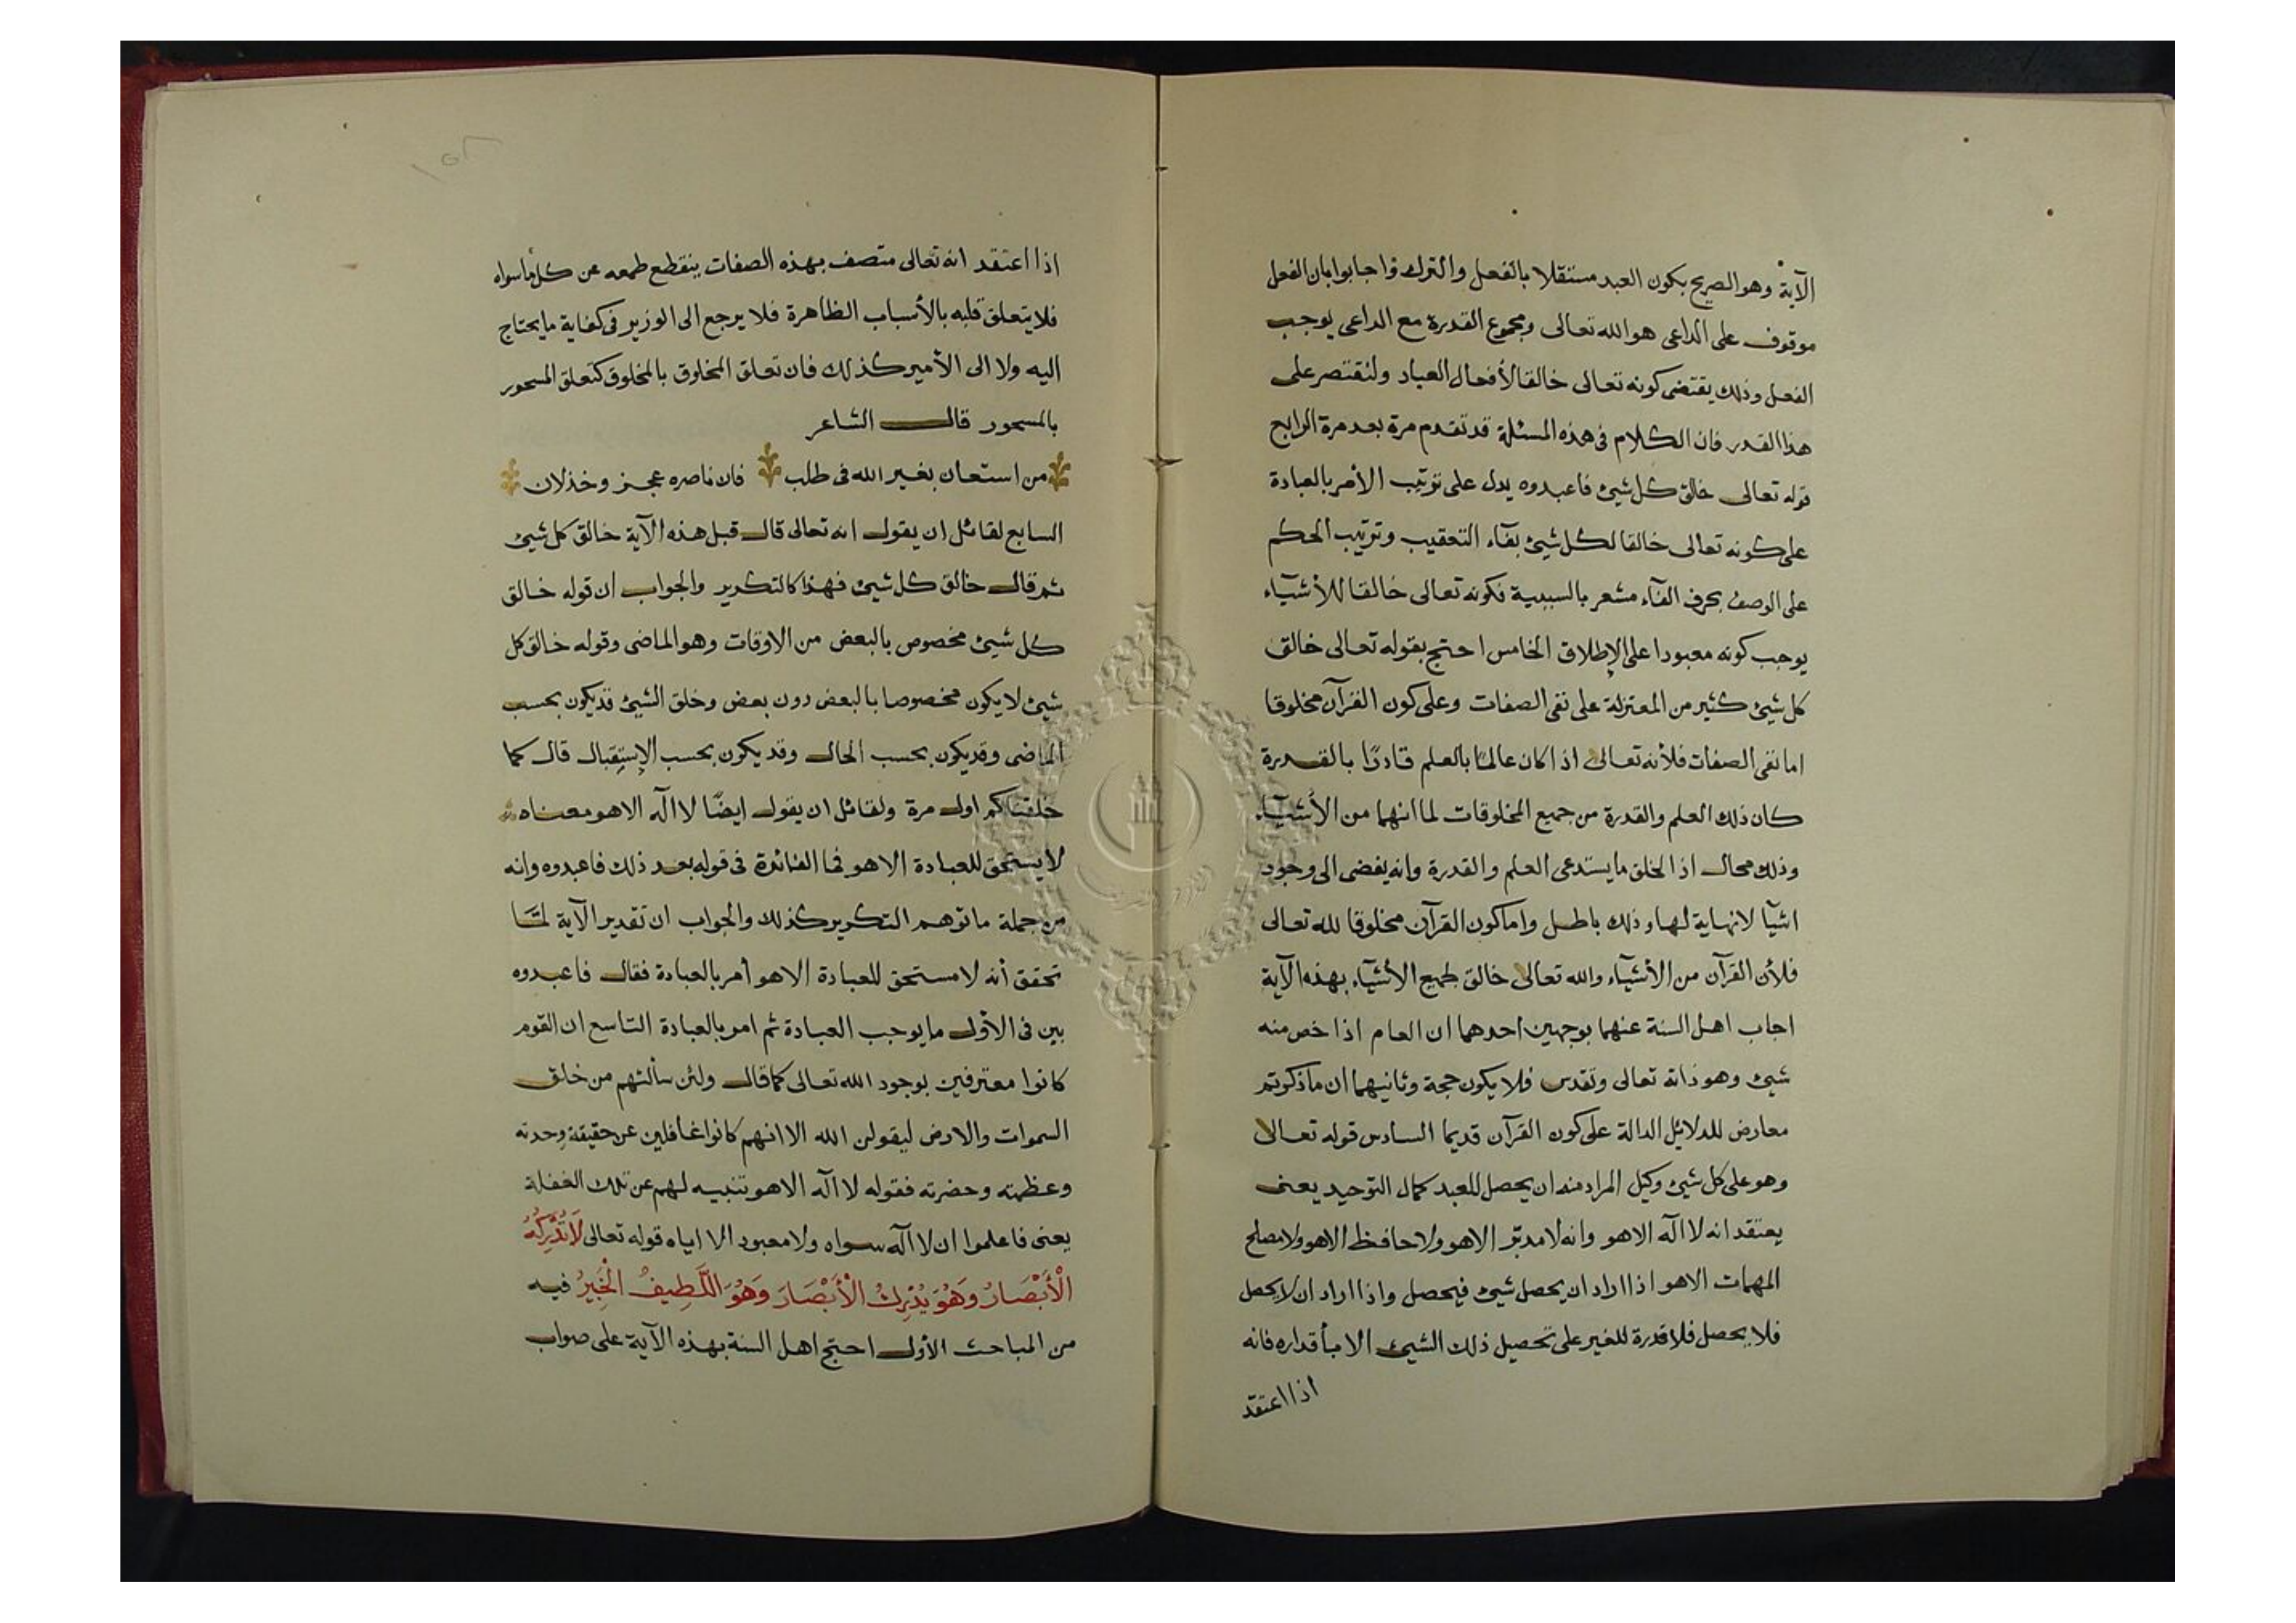 الآية وهو الصريح بكون العبد مستقلا بالفعل والترك واجابوا بان الفعل
موقوف على الداعى هو الله تعالى ومجموع القدرة مع الداعى يوجب
الفعل وذلك يقتضى كونه تعالى خالقا لأفعال العباد ولنقتصر على
هذا القدر فان الكلام فى هذه المسئلة قد تقدم مرة بعد مرة الرابح
قوله تعالى خالق كل شيئ فاعبدوه يدل على ترتيب الأمر بالعبادة
على كونه تعالى خالقا لكل شيئ بفآء التعقيب وترتيب الحكم
على الوصف بحرف الفآء مشعر بالسببية فكونه تعالى خالقا للأشيآء
يوجب كونه معبودا على الإطلاق الخامس احتج بقوله تعالى خالق
كل شيئ كثير من المعتزلة على نفى الصفات وعلى كون القرآن مخلوقا
اما نفى الصفات فلأنه تعالى اذا كان عالمًا بالعلم قادرًا بالقدرة
كان ذلك العلم والقدرة من جميع المخلوقات لما انهما من الأشيآء
وذلك محال اذ الخلق ما يستدعى العلم والقدرة وانه يفضى الى وجود
اشيآ لا نهاية لها وذلك باطل واما كون القرآن مخلوقا لله تعالى
فلأن القرآن من الأشيآء والله تعالى خالق لجميع الأشيآء بهذه الآية
اجاب اهل السنة عنهما بوجهين احدهما ان العام اذا خص منه
شيئ وهو ذاته تعالى وتقدس فلا يكون حجة وثانيهما ان ما ذكرتم
معارض للدلائل الدالة على كون القرآن قديما السادس قوله تعالى
وهو على كل شيئ وكيل المراد منه ان يحصل للعبد كمال التوحيد يعنى
يعتقد انه لا اآله الا هو وانه لا مدبّر الا هو ولا حافظ الا هو ولا مصلح
المهمات الا هو اذا اراد ان يحصل شيئ فيحصل واذا اراد ان لا يحصل
فلا يحصل فلا قدرة للغير على تحصيل ذلك الشيئ الا بأقداره فانه
اذا اعتقد
اذا اعتقد انه تعالى متصف بهذه الصفات ينقطع طمعه عن كل ما سواه
فلا يتعلق قلبه بالأسباب الظاهرة فلا يرجع الى الوزير فى كفاية ما يحتاج
اليه ولا الى الأمير كذلك فان تعلق المخلوق بالمخلوق كتعلق المسحور
بالمسحور قال الشاعر
من استعان بغير الله فى طلب فان ناصره عجز وخذلان
السابع لقائل ان يقول انه تعالى قال قبل هذه الآية خالق كل شيئ
ثم قال خالق كل شيئ فهذا كالتكرير والجواب ان قوله خالق
كل شيئ مخصوص بالبعض من الاوقات وهو الماضى وقوله خالق كل
شيئ لا يكون مخصوصا بالبعض دون بعض وخلق الشيئ قد يكون بحسب
الماضى وقد يكون بحسب الحال وقد يكون بحسب الإستقبال قال كما
خلقناكم اول مرة ولقائل ان يقول ايضًا لا اآله الا هو معناه
لا يستحق للعبادة الا هو فما الفائدة فى قوله بعد ذلك فاعبدوه وانه
من جملة ما توهم التكرير كذلك والجواب ان تقدير الآية لمّا
تحقق أنه لا مستحق للعبادة الا هو أمر بالعبادة فقال فاعبدوه
بين فى الأول ما يوجب العبادة ثم امر بالعبادة التاسع ان القوم
كانوا معترفين بوجود الله تعالى كما قال ولئن سألتهم من خلق
السموات والارض ليقولن الله الا انهم كانوا غافلين عن حقيقة وحدته
وعظمته وحضرته فقوله لا اآله الا هو تنبيه لهم عن تلك الغفلة
يعنى فاعلموا ان لا اآله سواه ولا معبود الا اياه قوله تعالى لَا تُدْرِكُهُ
الْأَبْصَارُ وَهُوَ يُدْرِكُ الْأَبْصَارَ وَهُوَ اللَّطِيفُ الْخَبِيرُ فيه
من المباحث الأول احتج اهل السنة بهذه الآية على صواب